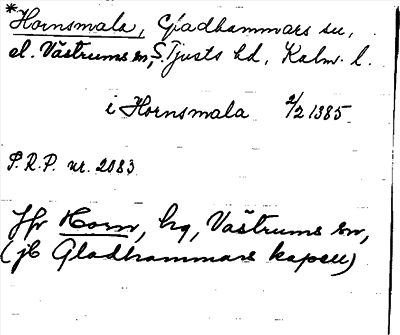 *Hornsmala, Gladhammars sn,
el. Västrums sn, S. Tjusts hd, Kalm. l.
i Hornsmala 2/2 1385
S.R.P. nr. 2083
Jfr Horn, hg, Västrums sn,
(jfr Gladhammars kapell)